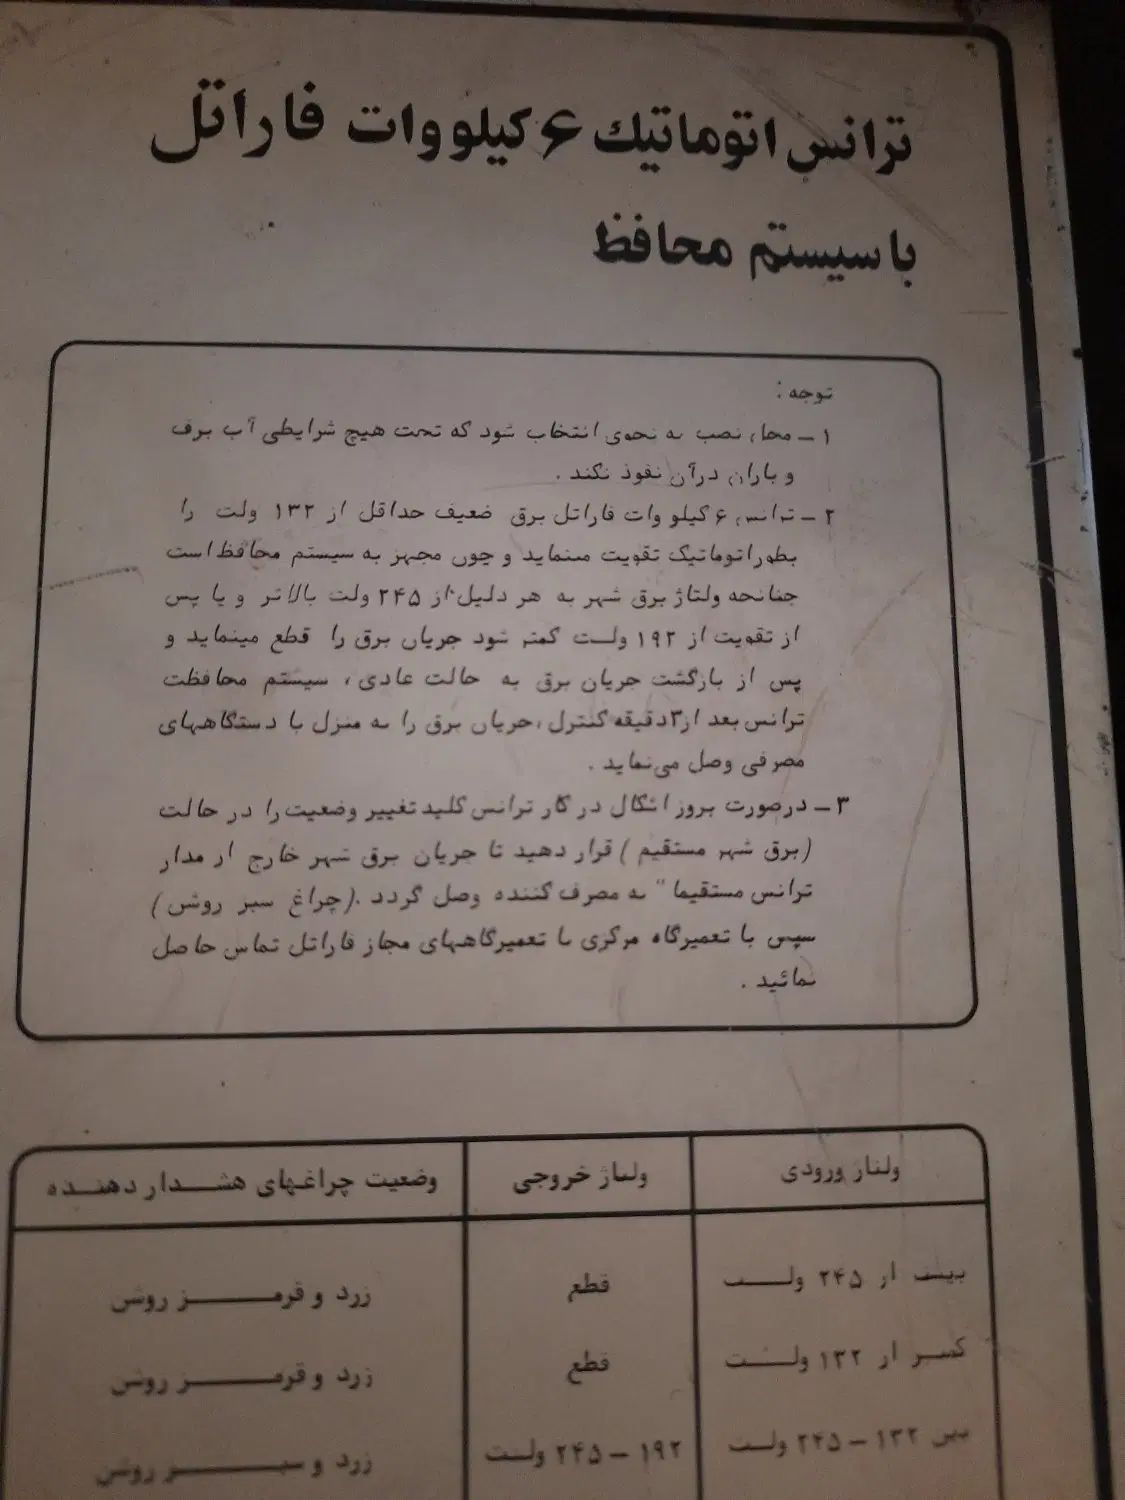 ترانس اتوماتیک ۶ کیلووات فاراتل
با سیستم محافظ
توجه :
۱ – محل نصب به نحوی انتخاب شود که تحت هیچ شرایطی آب برف
و باران درآن نفوذ نکند .
۲ – ترانس ۶ کیلو وات فاراتل برق ضعیف حداقل از ۱۳۲ ولت را
بطور اتوماتیک تقویت مینماید و چون مجهز به سیستم محافظ است
چنانچه ولتاژ برق شهر به هر دلیل از ۲۴۵ ولت بالاتر و یا پس
از تقویت از ۱۹۲ ولت کمتر شود جریان برق را قطع مینماید و
پس از بازگشت جریان برق به حالت عادی ، سیستم محافظت
ترانس بعد از ۳ دقیقه کنترل ، جریان برق را به منزل یا دستگاههای
مصرفی وصل می‌نماید .
۳ – درصورت بروز اشکال در کار ترانس کلید تغییر وضعیت را در حالت
(برق شهر مستقیم ) قرار دهید تا جریان برق شهر خارج از مدار
ترانس مستقیما" به مصرف کننده وصل گردد .(چراغ سبز روشن)
سپس با تعمیرگاه مرکزی یا تعمیرگاههای مجاز فاراتل تماس حاصل
نمائید .
ولتاژ ورودی ولتاژ خروجی وضعیت چراغهای هشدار دهنده
بیشتر از ۲۴۵ ولت قطع زرد و قرمز روشن
کمتر از ۱۳۲ ولت قطع زرد و قرمز روشن
بین ۱۳۲ – ۲۴۵ ولت ۱۹۲ – ۲۴۵ ولت زرد و سبز روشن